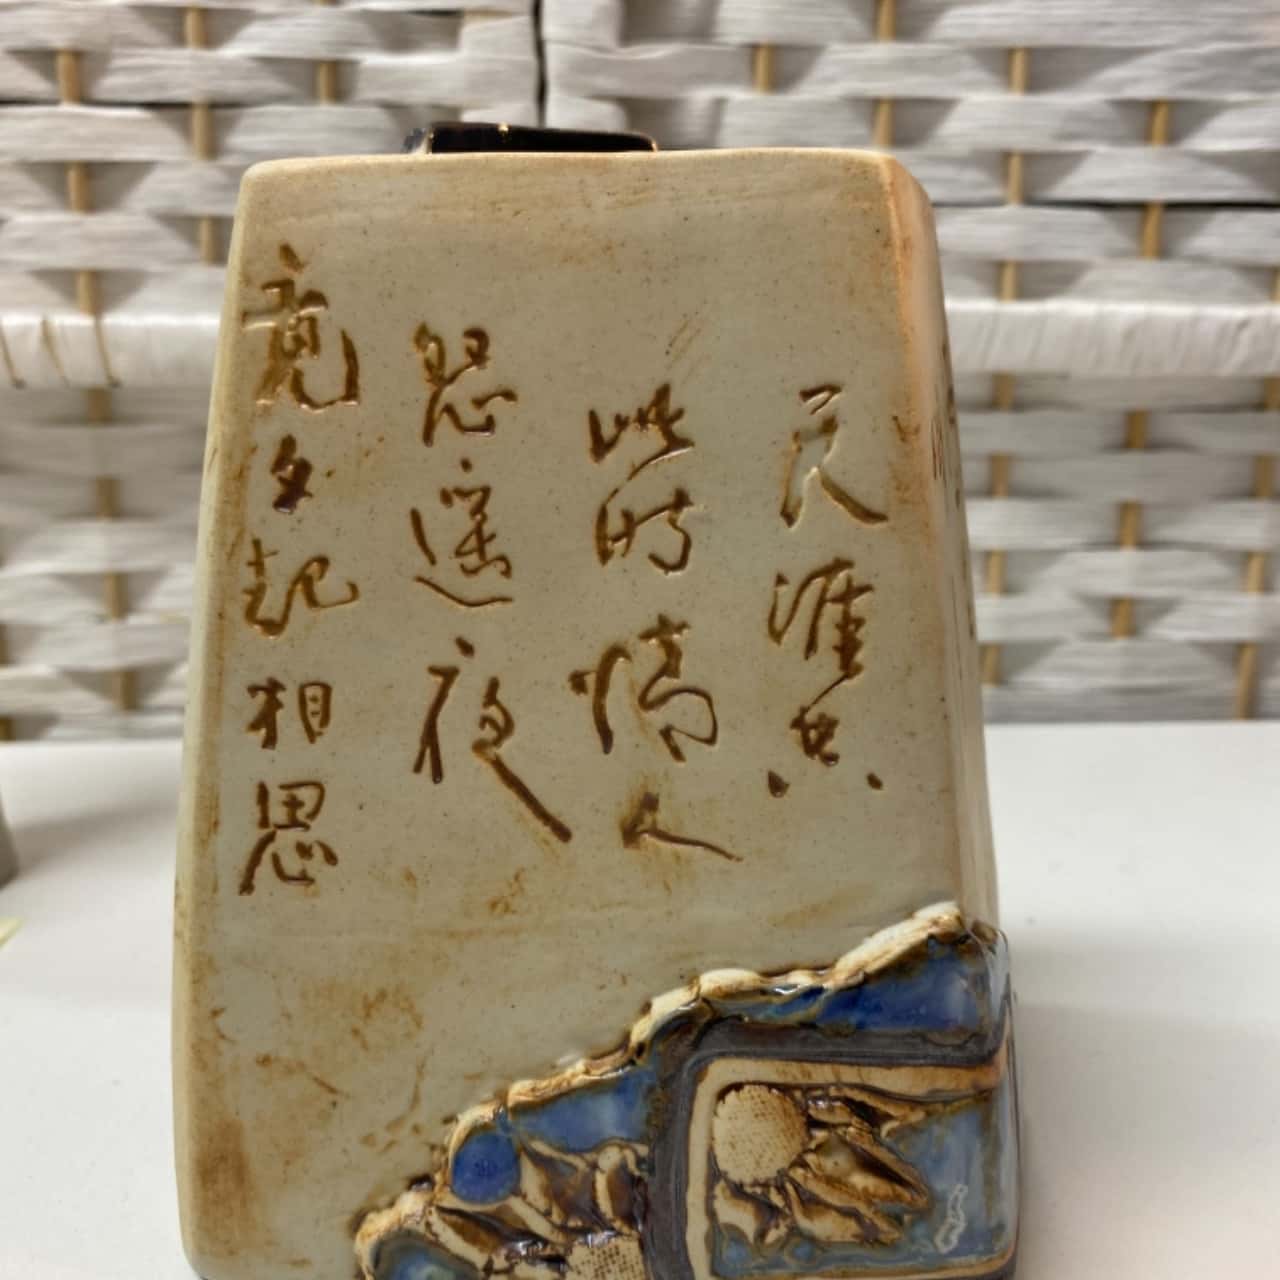 天涯共
此时情人
怨遥夜
竟夕起相思